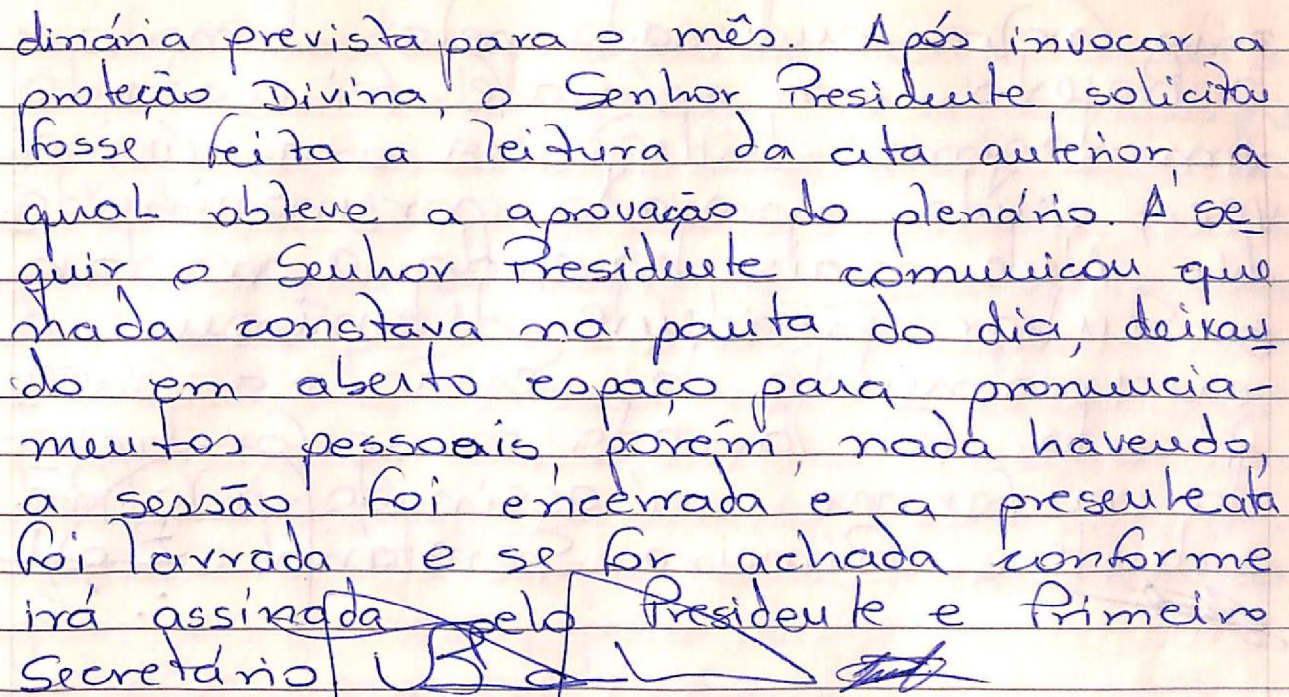 dinária prevista para o mês. Após invocar a
proteção Divina, o Senhor Presidente solicitou
fosse feita a leitura da ata anterior, a
qual obteve a aprovação do plenário. A se-
guir o Senhor Presidente comunicou que
nada constava na pauta do dia, deixan-
do em aberto espaço para pronuncia-
mentos pessoais, porém, nada havendo,
a sessão foi encerrada e a presente ata
foi lavrada e se for achada conforme
irá assinada pelo Presidente e Primeiro
Secretário